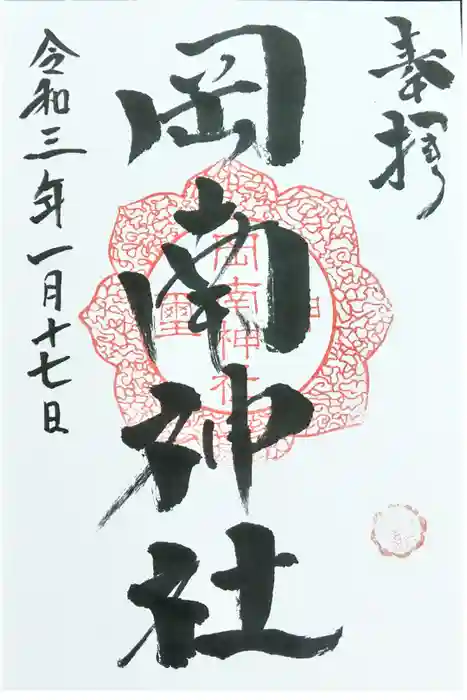 奉拝
岡南神社
岡南神社
神
璽
令和三年一月十七日